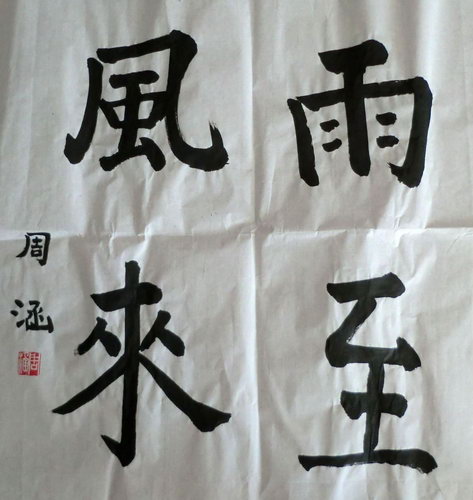 雨至
風來
周涵